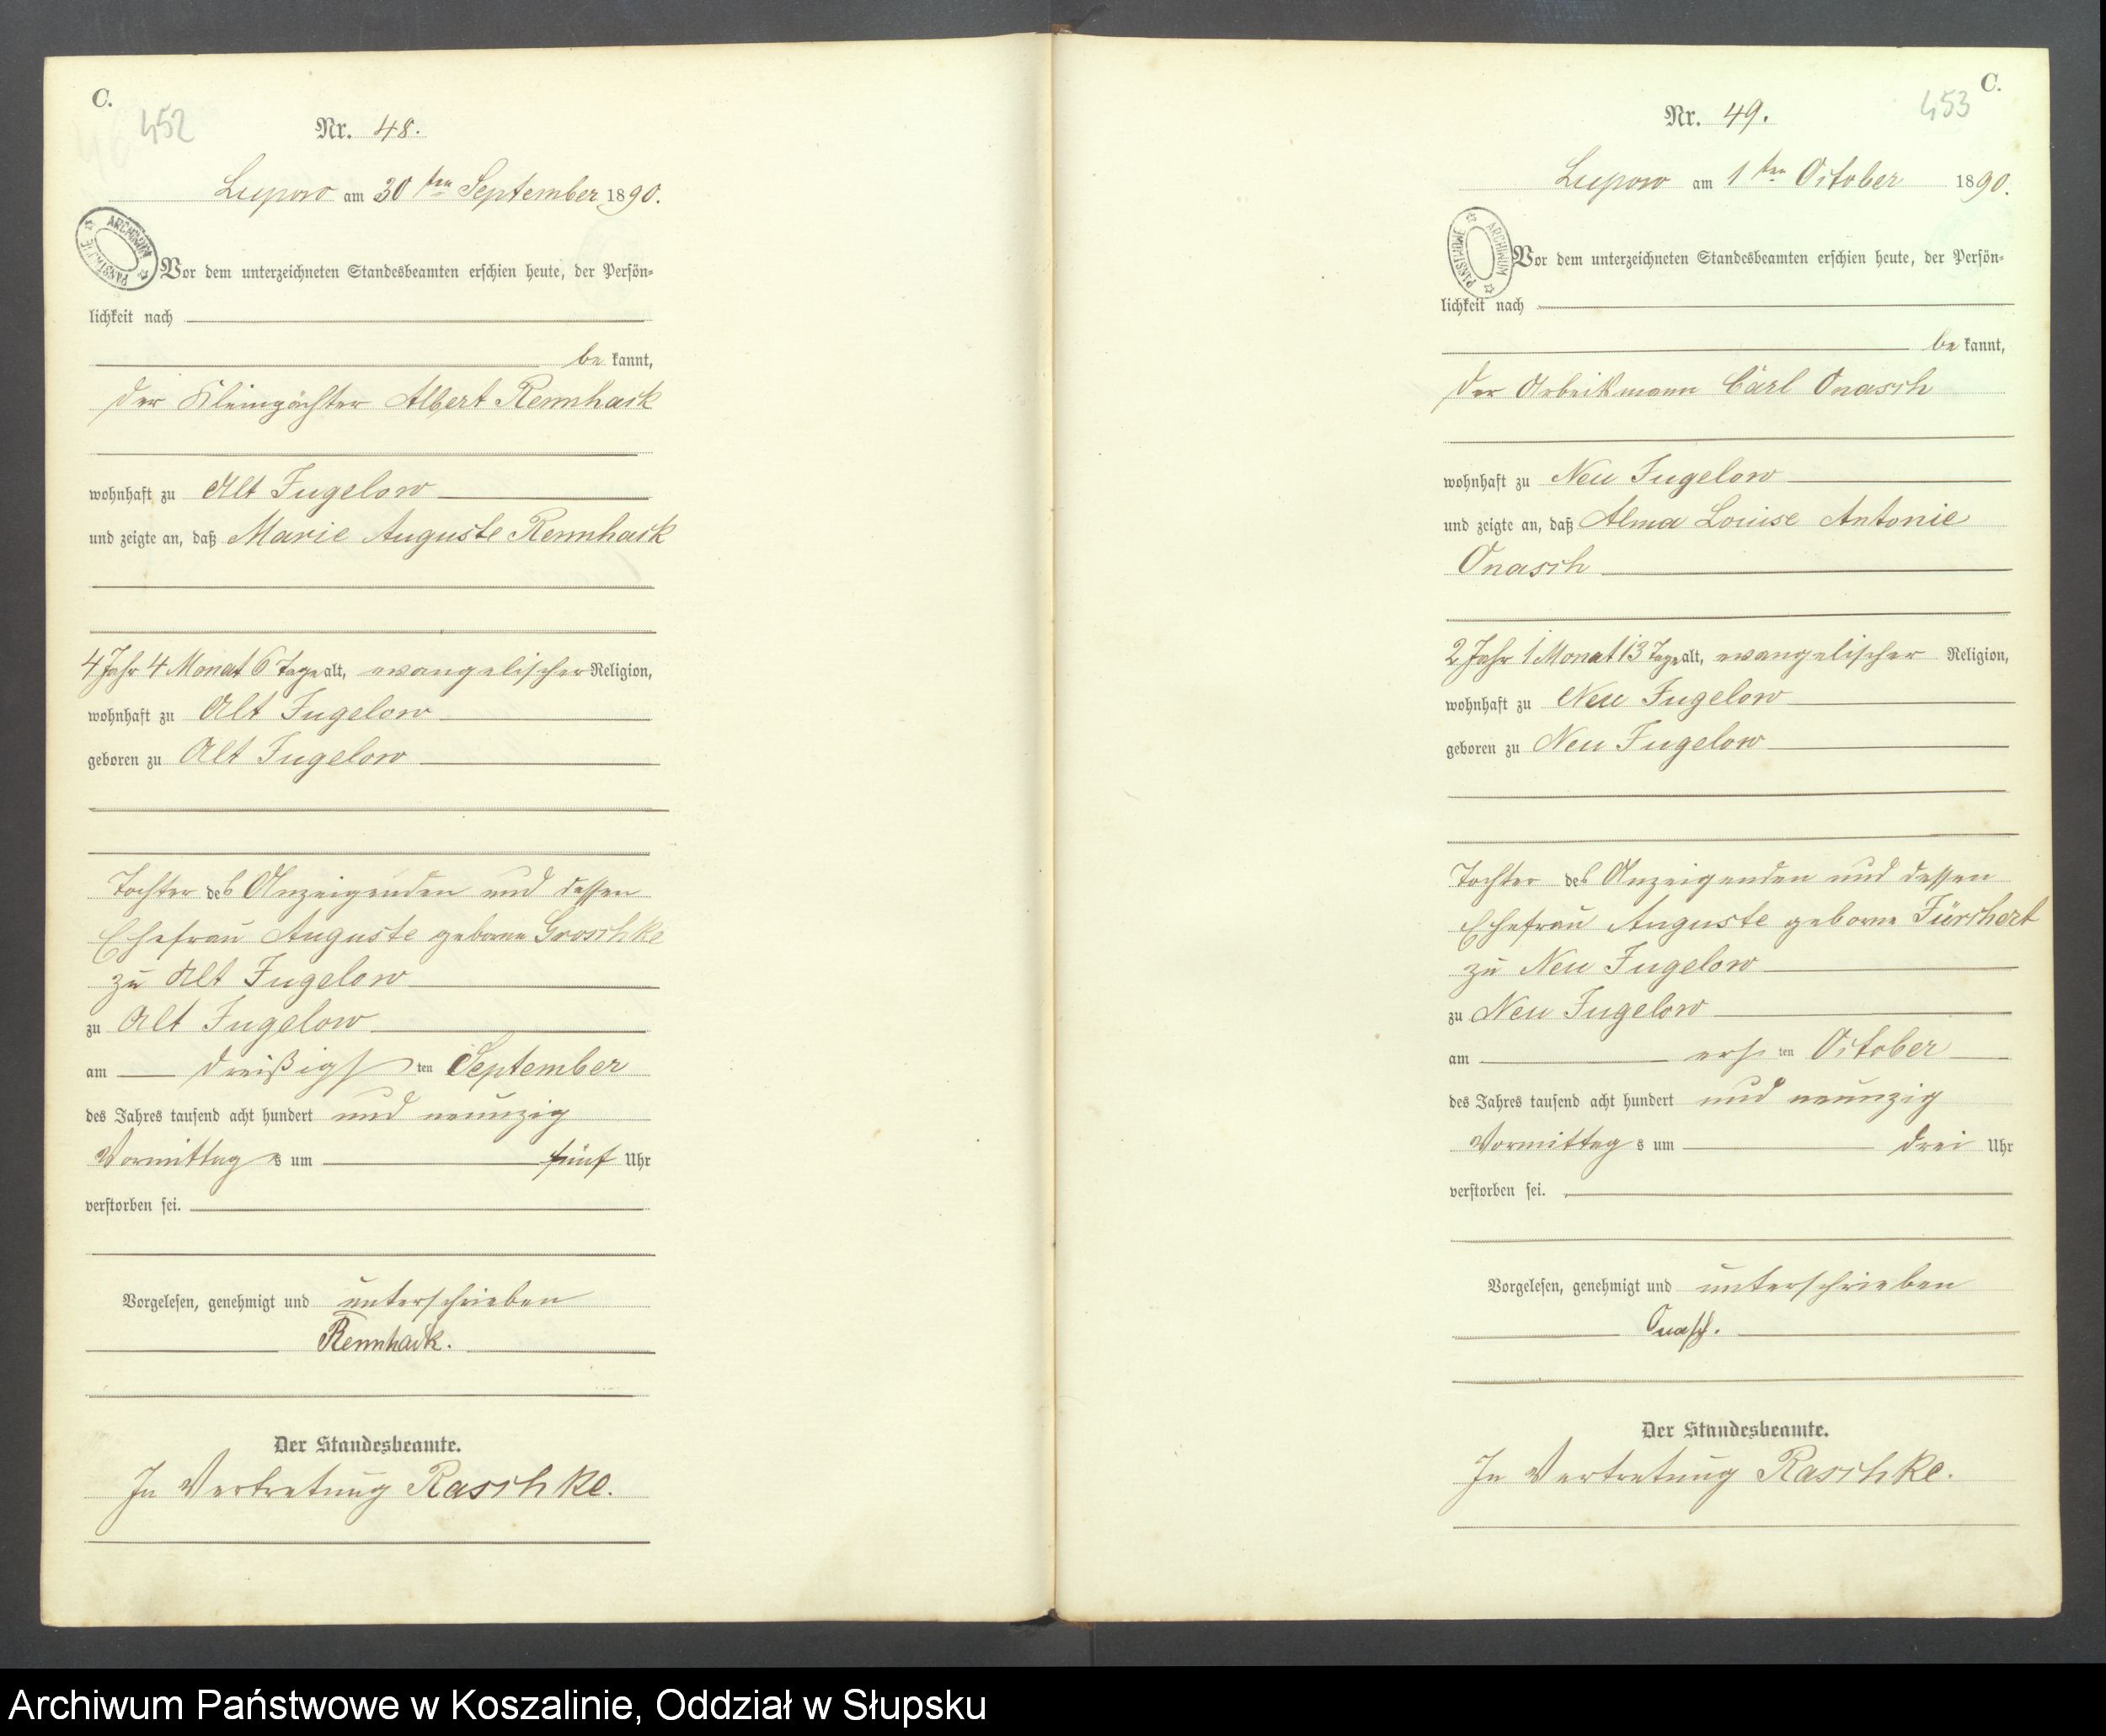 C.
452
Nr. 48.
Lupow am 30ten September 1890.
ARCHIWUM PAŃSTWOWE
Vor dem unterzeichneten Standesbeamten erschien heute, der Persön-
lichkeit nach
be kannt,
der Kleinpächter Albert Rennhack
wohnhaft zu Alt Jugelow
und zeigte an, daß Marie Auguste Rennhack
4 Jahr 4 Monat 6 Tage alt, evangelischer Religion,
wohnhaft zu Alt Jugelow
geboren zu Alt Jugelow
Tochter des Anzeigenden und dessen
Ehefrau Auguste geborne Groschke
zu Alt Jugelow
zu Alt Jugelow
am dreißigsten September
des Jahres tausend acht hundert und neunzig
Vormittags um fünf Uhr
verstorben sei.
Vorgelesen, genehmigt und unterschrieben
Rennhack.
Der Standesbeamte.
In Vertretung Raschke.
C.
453
Nr. 49.
Lupow am 1ten October 1890.
ARCHIWUM PAŃSTWOWE
Vor dem unterzeichneten Standesbeamten erschien heute, der Persön-
lichkeit nach
be kannt,
der Arbeitsmann Carl Onasch
wohnhaft zu Neu Jugelow
und zeigte an, daß Alma Louise Antonie
Onasch
2 Jahr 1 Monat 13 Tage alt, evangelischer Religion,
wohnhaft zu Neu Jugelow
geboren zu Neu Jugelow
Tochter des Anzeigenden und dessen
Ehefrau Auguste geborne Fürchert
zu Neu Jugelow
zu Neu Jugelow
am ersten October
des Jahres tausend acht hundert und neunzig
Vormittags um drei Uhr
verstorben sei.
Vorgelesen, genehmigt und unterschrieben
Onasch.
Der Standesbeamte.
In Vertretung Raschke.
Archiwum Państwowe w Koszalinie, Oddział w Słupsku